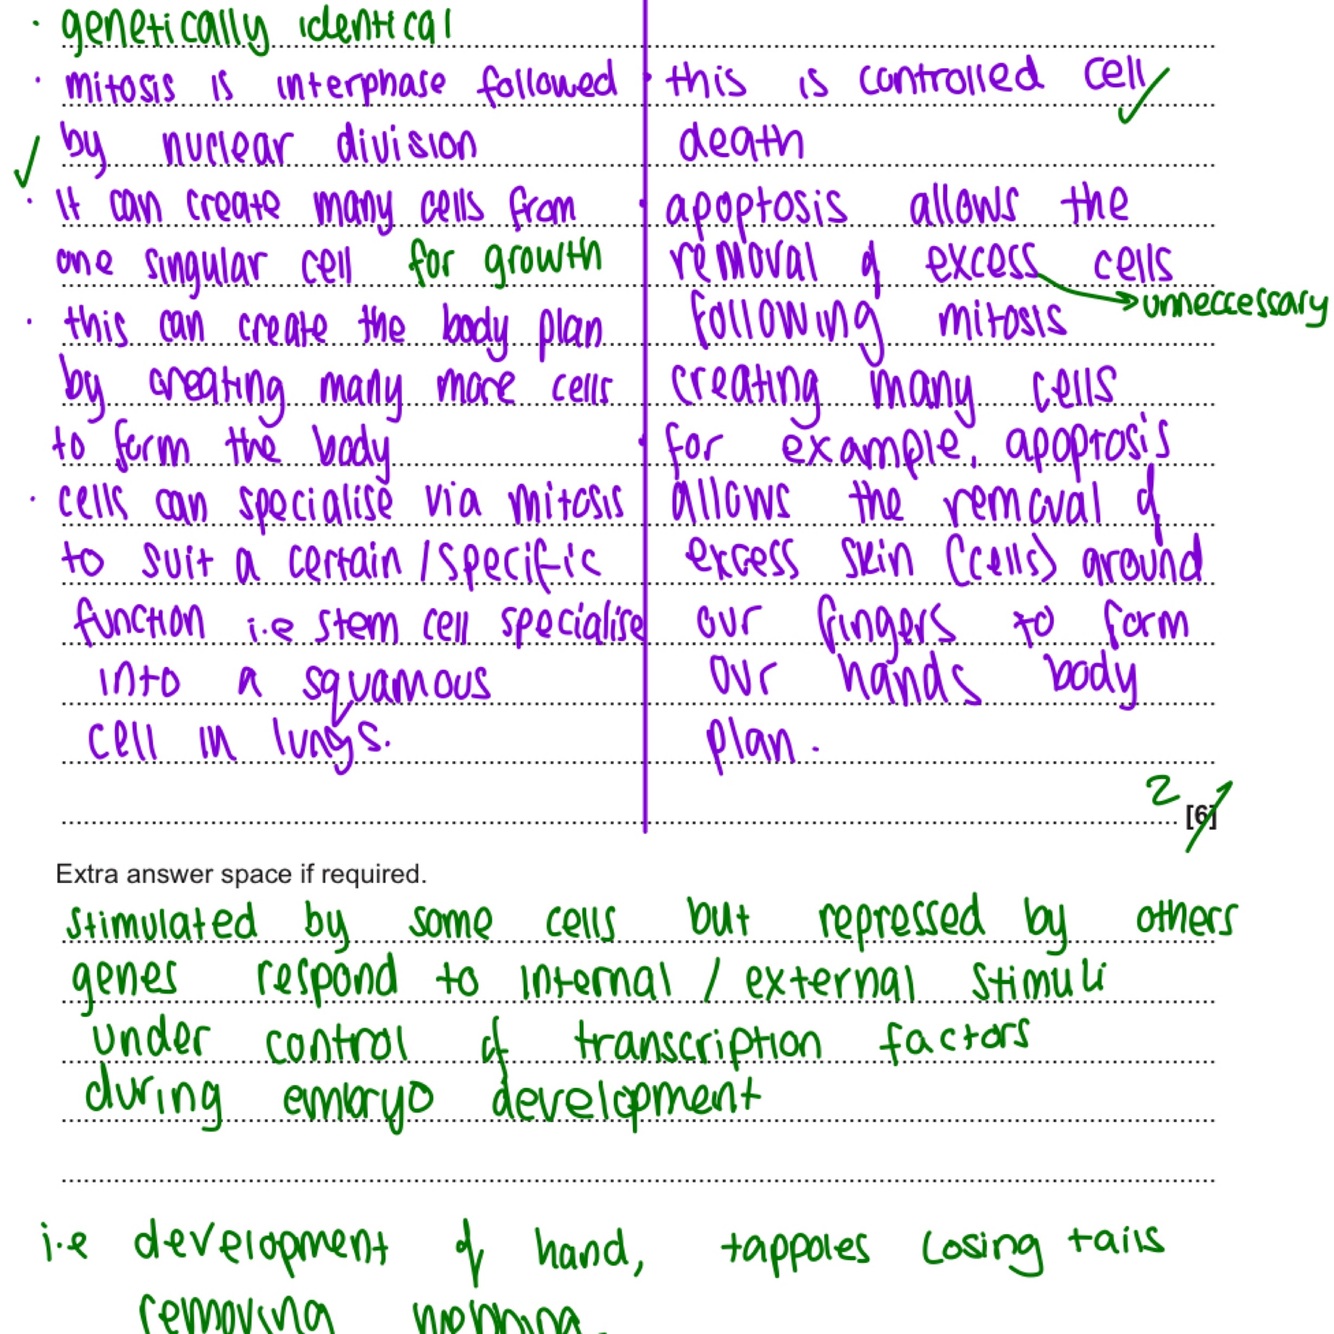 · genetically identical
· mitosis is interphase followed
by nuclear division
· It can create many cells from
one singular cell for growth
· this can create the body plan
by creating many more cells
to form the body
· cells can specialise via mitosis
to suit a certain / specific
function i.e stem cell specialise
into a squamous
cell in lungs.
· this is controlled cell
death
· apoptosis allows the
removal of excess cells
unneccessary
following mitosis
creating many cells
· for example, apoptosis
allows the removal of
excess skin (cells) around
our fingers to form
our hands body
plan.
2 [6]
Extra answer space if required.
stimulated by some cells but repressed by others
genes respond to internal / external stimuli
under control of transcription factors
during embryo development
i.e development of hand, tappoles losing tails
removing